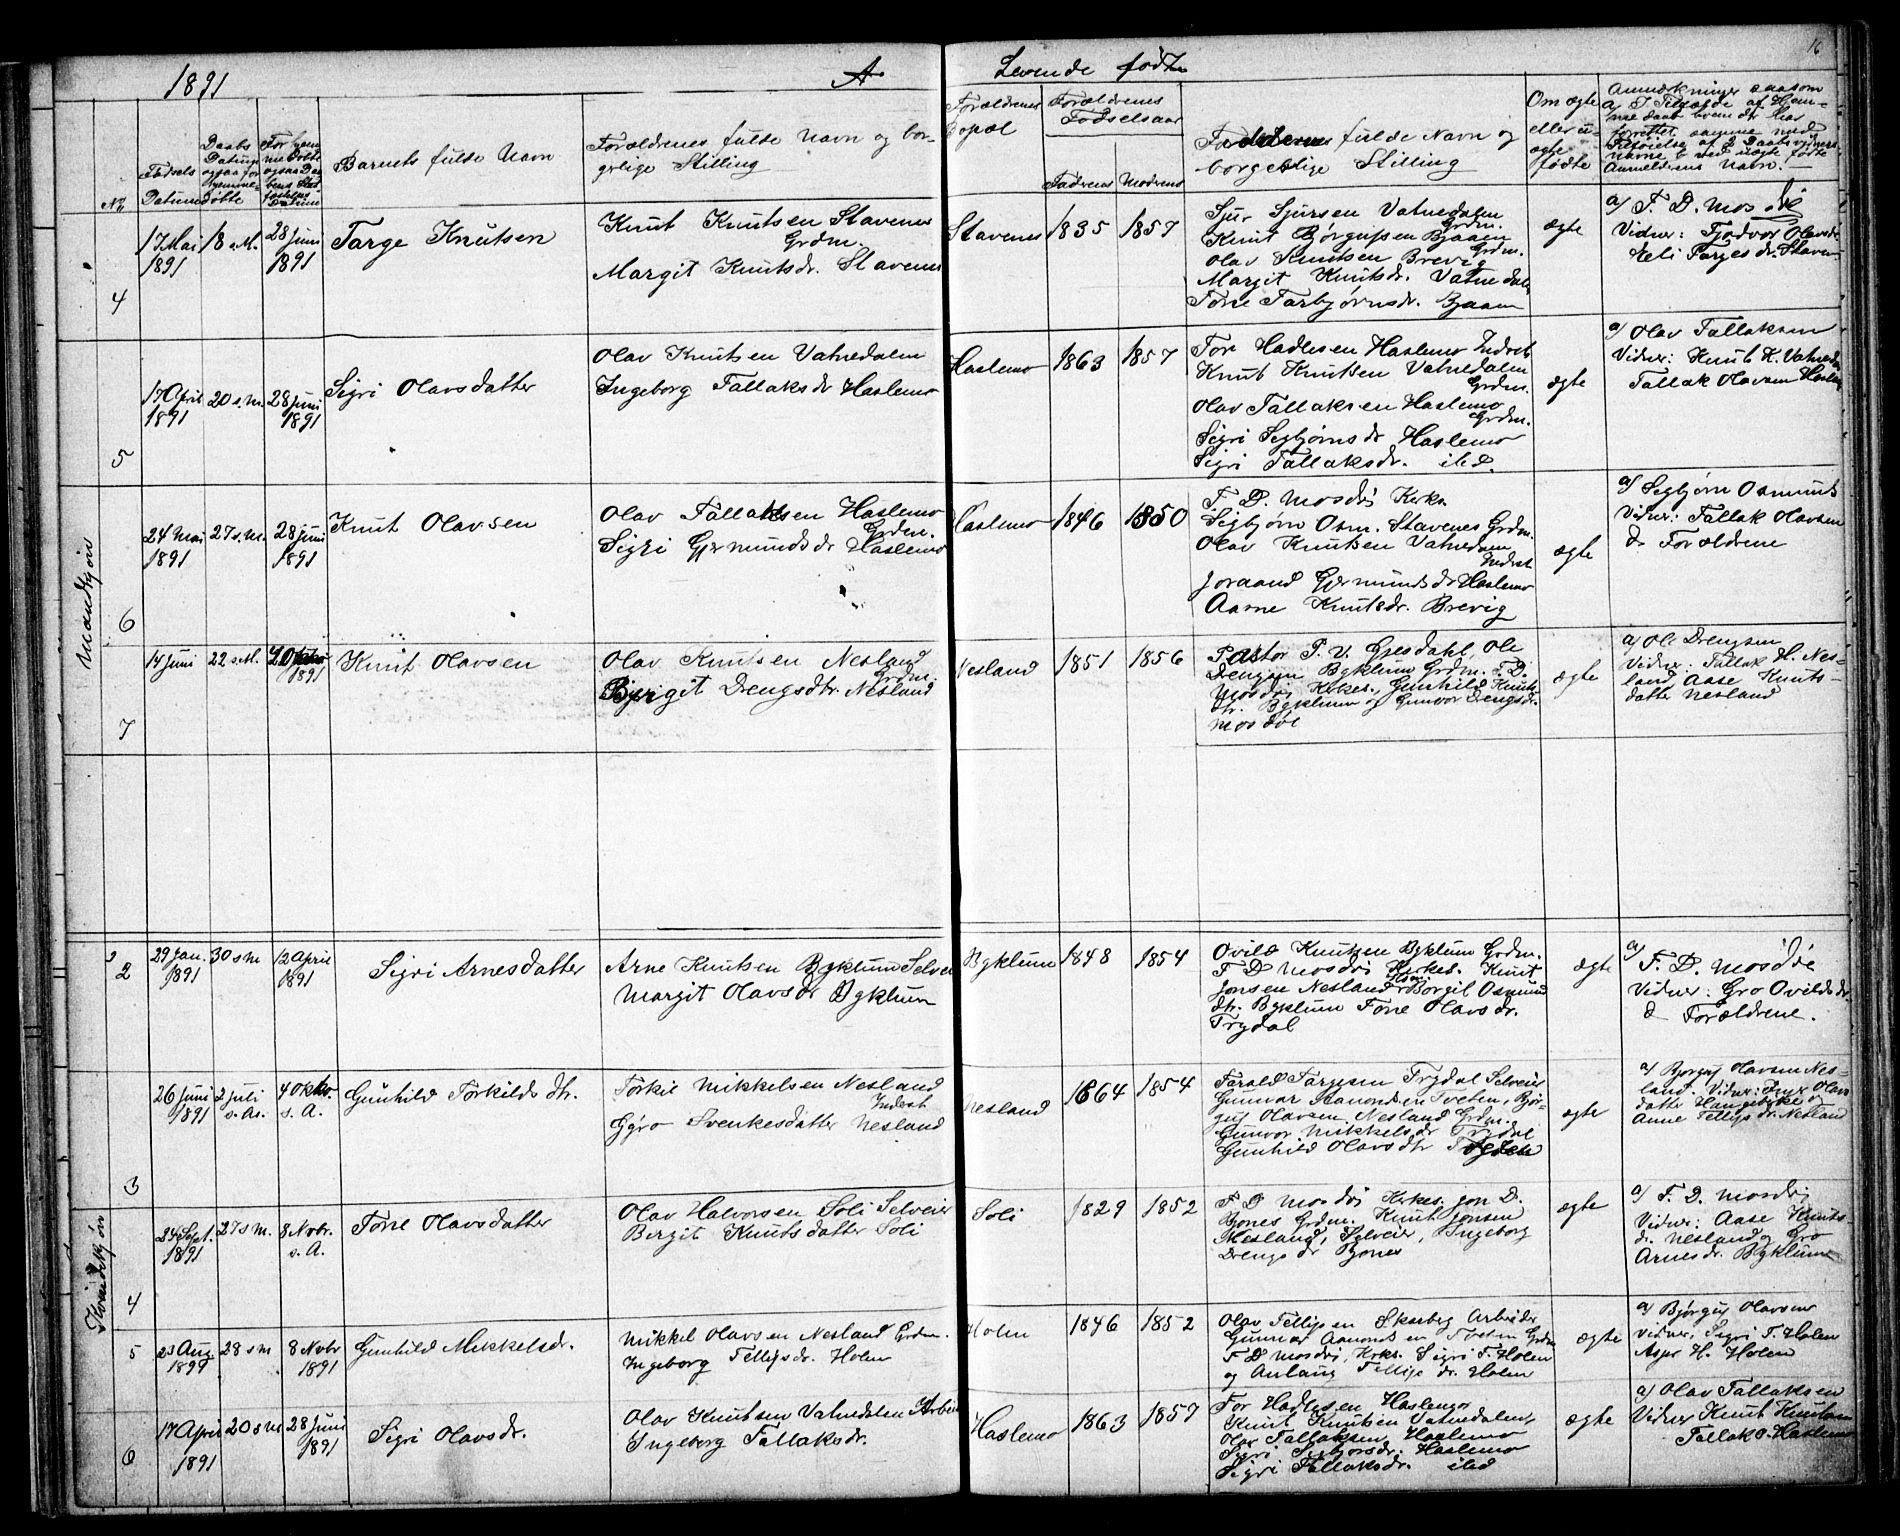 1891
A
Levende fødte
16
No
Fødsels Datum
Daabs Datum
Barnets fulde Navn
Forældrenes fulde Navn og bor-
gerlige Stilling
Forældrenes
Bopæl
Forældrenes
Fødselsaar
Fadrens Modrens
Faddernes fulde Navn og
borgerlige Stilling
Om ægte
eller u-
ægte
fødte
Anmærkninger saasom
Mandkjøn
4
17 Mai
1891
18 s.M.
28 Juni
1891
Targe Knutsen
Knut Knutsen Stavenes
Grdm.
Margit Knutsdr. Stavenes
Stavenes
1835
1857
Sjur Sjursen Vatnedalen
Grdm.
Knut Bjørgufsen Bjaaen
Grdm.
Olav Knutsen Brevig
Margit Knutsdr. Vatnedalen
Tone Tarbjørnsdr. Bjaaen
ægte
a/ T. D. Mosdøl
Vidner: Fjodvor Olavsdr.
Eeli Targesdr. Stavenes
5
17 April
1891
20 s.m.
28 juni
1891
Sigri Olavsdatter
Olav Knutsen Vatnedalen
Ingeborg Tallaksdr Haslemo
Haslemo
1863
1857
Tor Hadlesen Haslemo Inderst
Knut Knutsen Vatnedalen
Grdm.
Olav Tallaksen Haslemo
Grdm.
Sigri Segbjørnsdr Haslemo
Sigri Tallaksdr. ibd.
ægte
a/ Olav Tallaksen
Vidner: Knut K. Vatnedalen
Tallak Olavsen Haslemo
6
24 Mai
1891
27 s.m.
28 juni
1891
Knut Olavsen
Olav Tallaksen Haslemo
Grdm.
Sigri Gjermundsdr Haslemo
Haslemo
1846
1850
T. D. Mosdøl Kerks.
Segbjørn Osm. Stavenes Grdm.
Olav Knutsen Vatnedalen
Inderst
Joraand Gjermundsdr Haslemo
Aarne Knutsdr. Brevig
ægte
a/ Segbjørn Osmunds
Vidner: Tallak Olavsen
& Forældrene
7
14 Juni
22 s.M.
1891
Knut Olavsen
Olav Knutsen Nesland
Grdm.
Birgit Drengsdtr. Nesland
Nesland
1851
1856
Pastor P. V. Gjesdahl, Ole
Drengsen Byklum Grdm. T. D.
Mosdøl Kirkes., Gunhild Knuts-
dtr. Byklum og Gunvor Drengsdr.
Mosdøl
ægte
a/ Ole Drengsen
Vidner: Tallak H. Nes-
land, Aase Knuts-
datter Nesland
Kvindekjøn
2
29 Jan.
1891
30 s m
12 April
1891
Sigri Arnesdatter
Arne Knutsen Byklum Selveier
Margit Olavsdr Byklum
Byklum
1848
1854
Ovild Knutsen Byklum Grdm.
T D Mosdøl Kirkes. Knut
Jonsen Nesland Borgil Osmund
dtr. Byklum Tone Olavsdr.
Trydal
ægte
a/
T. D. Mosdøl
Vidner: Gro Ovildsdr.
& Forældrene.
3
26 Juni
1891
2 Juli
s. A.
4 Oktbr.
s. A.
Gunhild Torkildsdtr.
Torkil Mikkelsen Nesland
Inderst
Gyro Svenkesdatter Nesland
Nesland
1864
1854
Tarald Targesen Trydal Selveier
Gunnar Aanondsen Tveten, Bjør-
guf Olavsen Nesland Grdm.
Gunvor Mikkelsdr Trydal
Gunhild Olavsdtr Trydal
ægte
a/ Bjørguf Olavsen Nes-
land. Vidner: Olav-
datter
Anne Tellefsdr. Nesland
4
24 Sept.
1891
27 s m.
8 Novbr.
s. A.
Tone Olavsdatter
Olav Halvorsen Soli Selveier
Birgit Knutsdatter Soli
Soli
1829
1852
T D Mosdøl Kirkes. Jon D.
Bjones Grdm. Knut Jonsen
Nesland, Selveier, Ingeborg
Drengsdr Bjones
ægte
a/ T. D. Mosdøl
Vidner: Aase Knuts-
dr. Nesland og Gro
Arnesdr. Byklum
5
23 Aug.
1891
28 s m
8 Novbr
1891
Gunhild Mikkelsdr.
Mikkel Olavsen Nesland Grdm.
Ingeborg Tellefsdr. Holen
Holen
1846
1852
Olav Tellefsen Skarberg Arbeider
Gunnar Aanondsen Tveten Grdm
T D Mosdøl, Kirks. Sigri T. Holen
og Anlaug Tellefsdr. Holen
ægte
a/ Bjørguf Olavsen
Vidner, Sigri T. Holen
Asper H. Holen
6
17 April
1891
20 s m
28 Juni
1891
Sigri Olavsdr.
Olav Knutsen Vatnedalen Arbeid
Ingeborg Tallaksdr.
Haslemo
1863
1857
Tor Hadlesen Haslemo
Knut Knutsen Vatnedalen,
Olav Tallaksen Haslemo
Sigri Segbjørnsdr. Haslemo
Sigri Tallaksdr. ibd
ægte
a/ Olav Tallaksen
Vidner Knut Knutsen
Tallak O. Haslemo